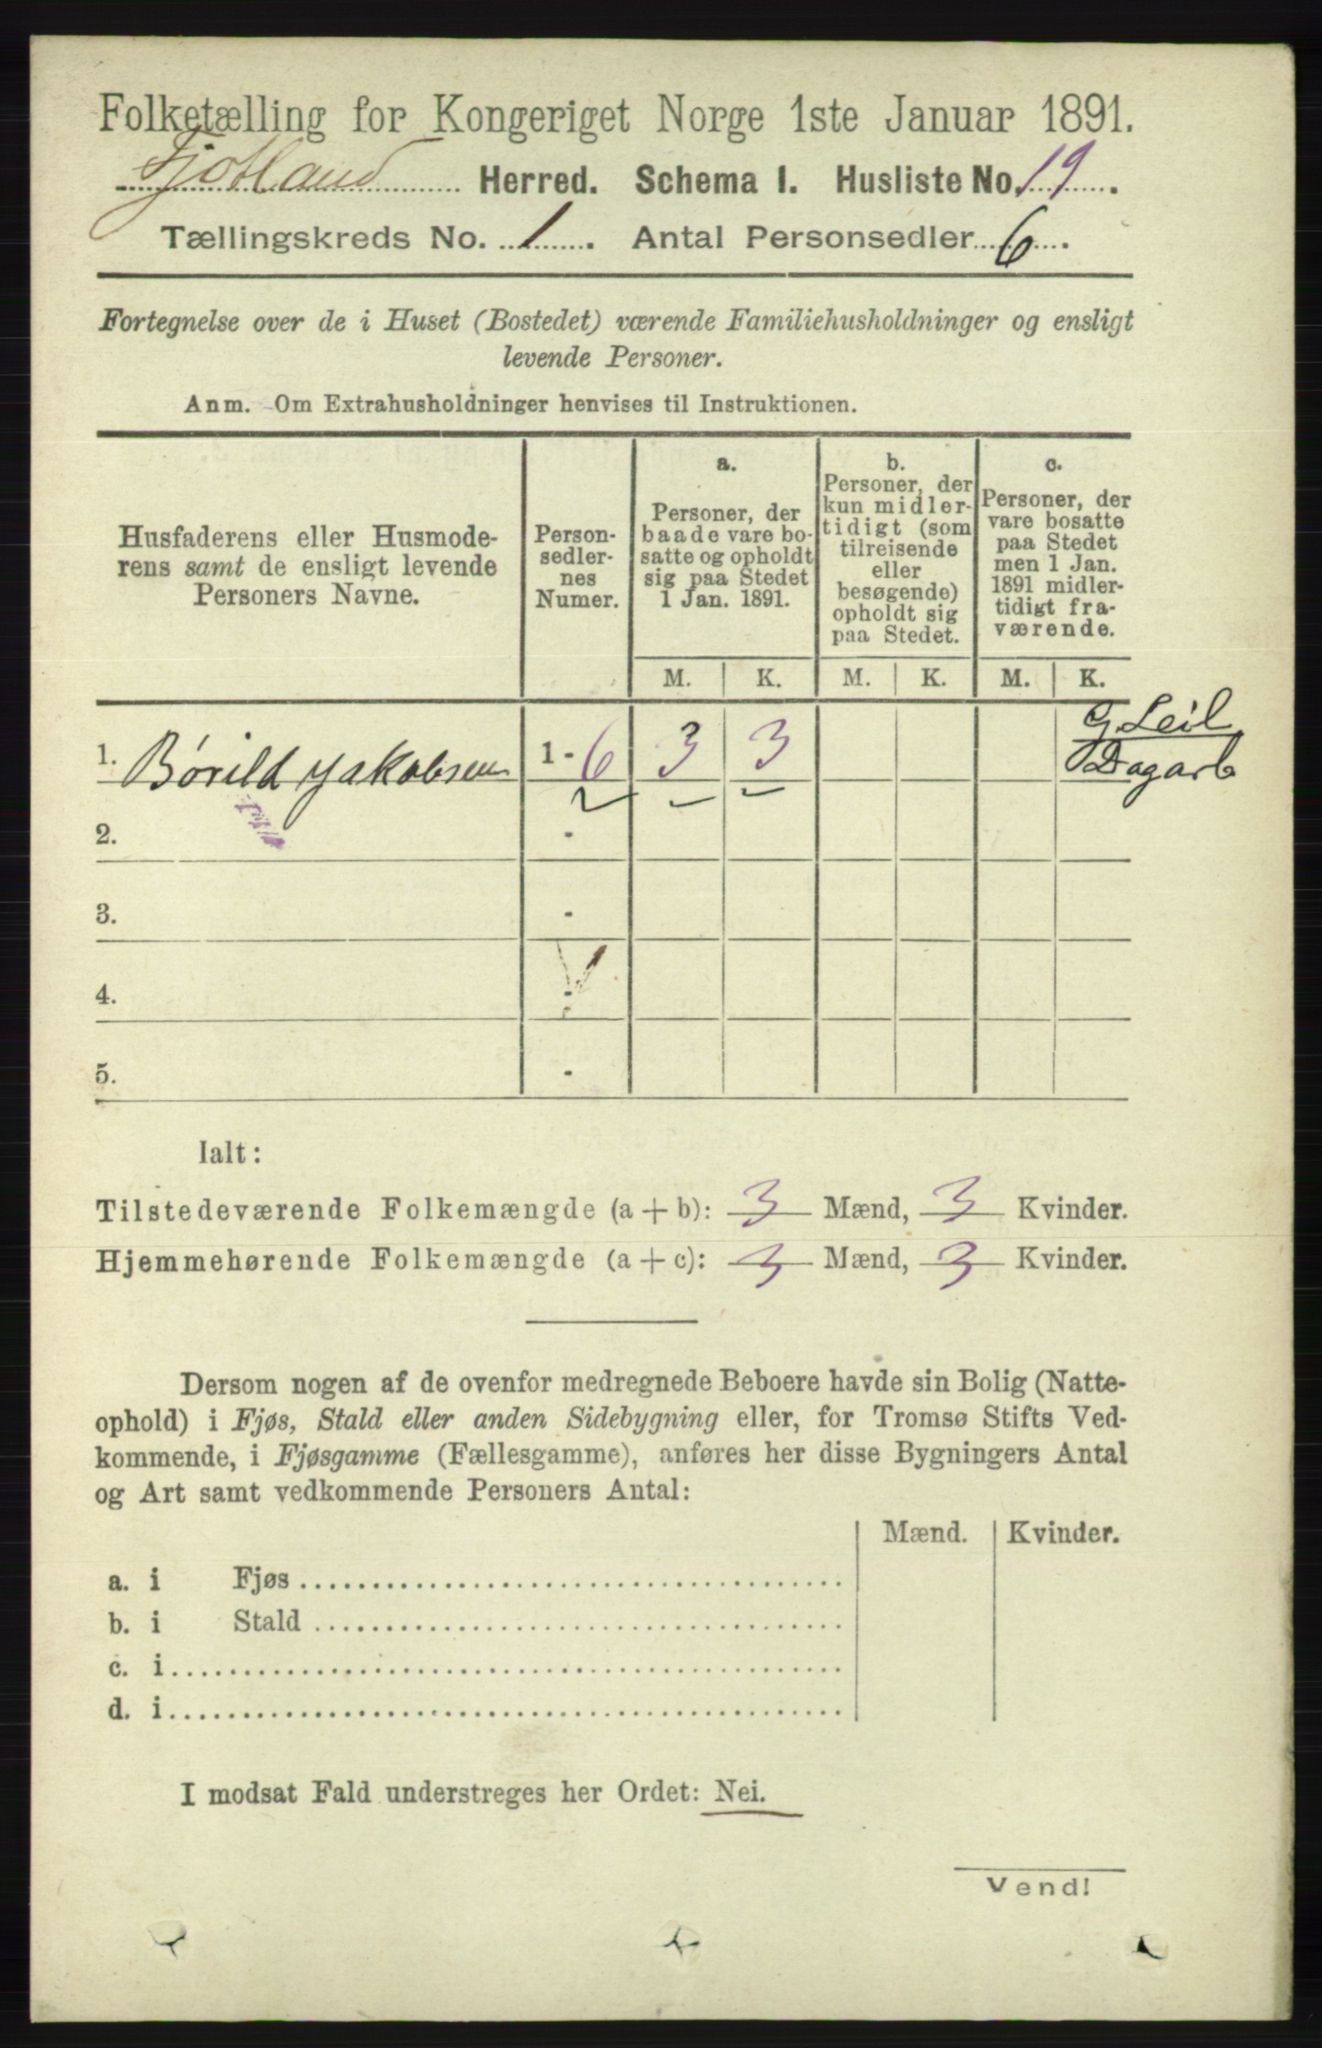 Folketælling for Kongeriget Norge 1ste Januar 1891.
Fjotland Herred. Schema 1. Husliste No. 19.
Tællingskreds No. 1. Antal Personsedler 6.
Fortegnelse over de i Huset (Bostedet) værende Familiehusholdninger og ensligt
levende Personer.
Anm. Om Extrahusholdninger henvises til Instruktionen.
Husfaderens eller Husmode-
rens samt de ensligt levende
Personers Navne.
Person-
sedler-
nes
Numer.
a.
Personer, der
baade vare bo-
satte og opholdt
sig paa Stedet
1 Jan. 1891.
b.
Personer, der
kun midler-
tidigt (som
tilreisende
eller
besøgende)
opholdt sig
paa Stedet.
c.
Personer, der
vare bosatte
paa Stedet
men 1 Jan.
1891 midler-
tidigt fra-
værende.
M. K. M. K. M. K.
G. Leil
Dagarb
1. Børild Jakobsen 1 - 6 3 3
2. -
3. -
4. -
5. -
Ialt:
Tilstedeværende Folkemængde (a + b): 3 Mænd, 3 Kvinder.
Hjemmehørende Folkemængde (a + c): 3 Mænd, 3 Kvinder.
Dersom nogen af de ovenfor medregnede Beboere havde sin Bolig (Natte-
ophold) i Fjøs, Stald eller anden Sidebygning eller, for Tromsø Stifts Ved-
kommende, i Fjøsgamme (Fællesgamme), anføres her disse Bygningers Antal
og Art samt vedkommende Personers Antal:
Mænd. Kvinder.
a. i Fjøs
b. i Stald
c. i
d. i
I modsat Fald understreges her Ordet: Nei.
Vend!